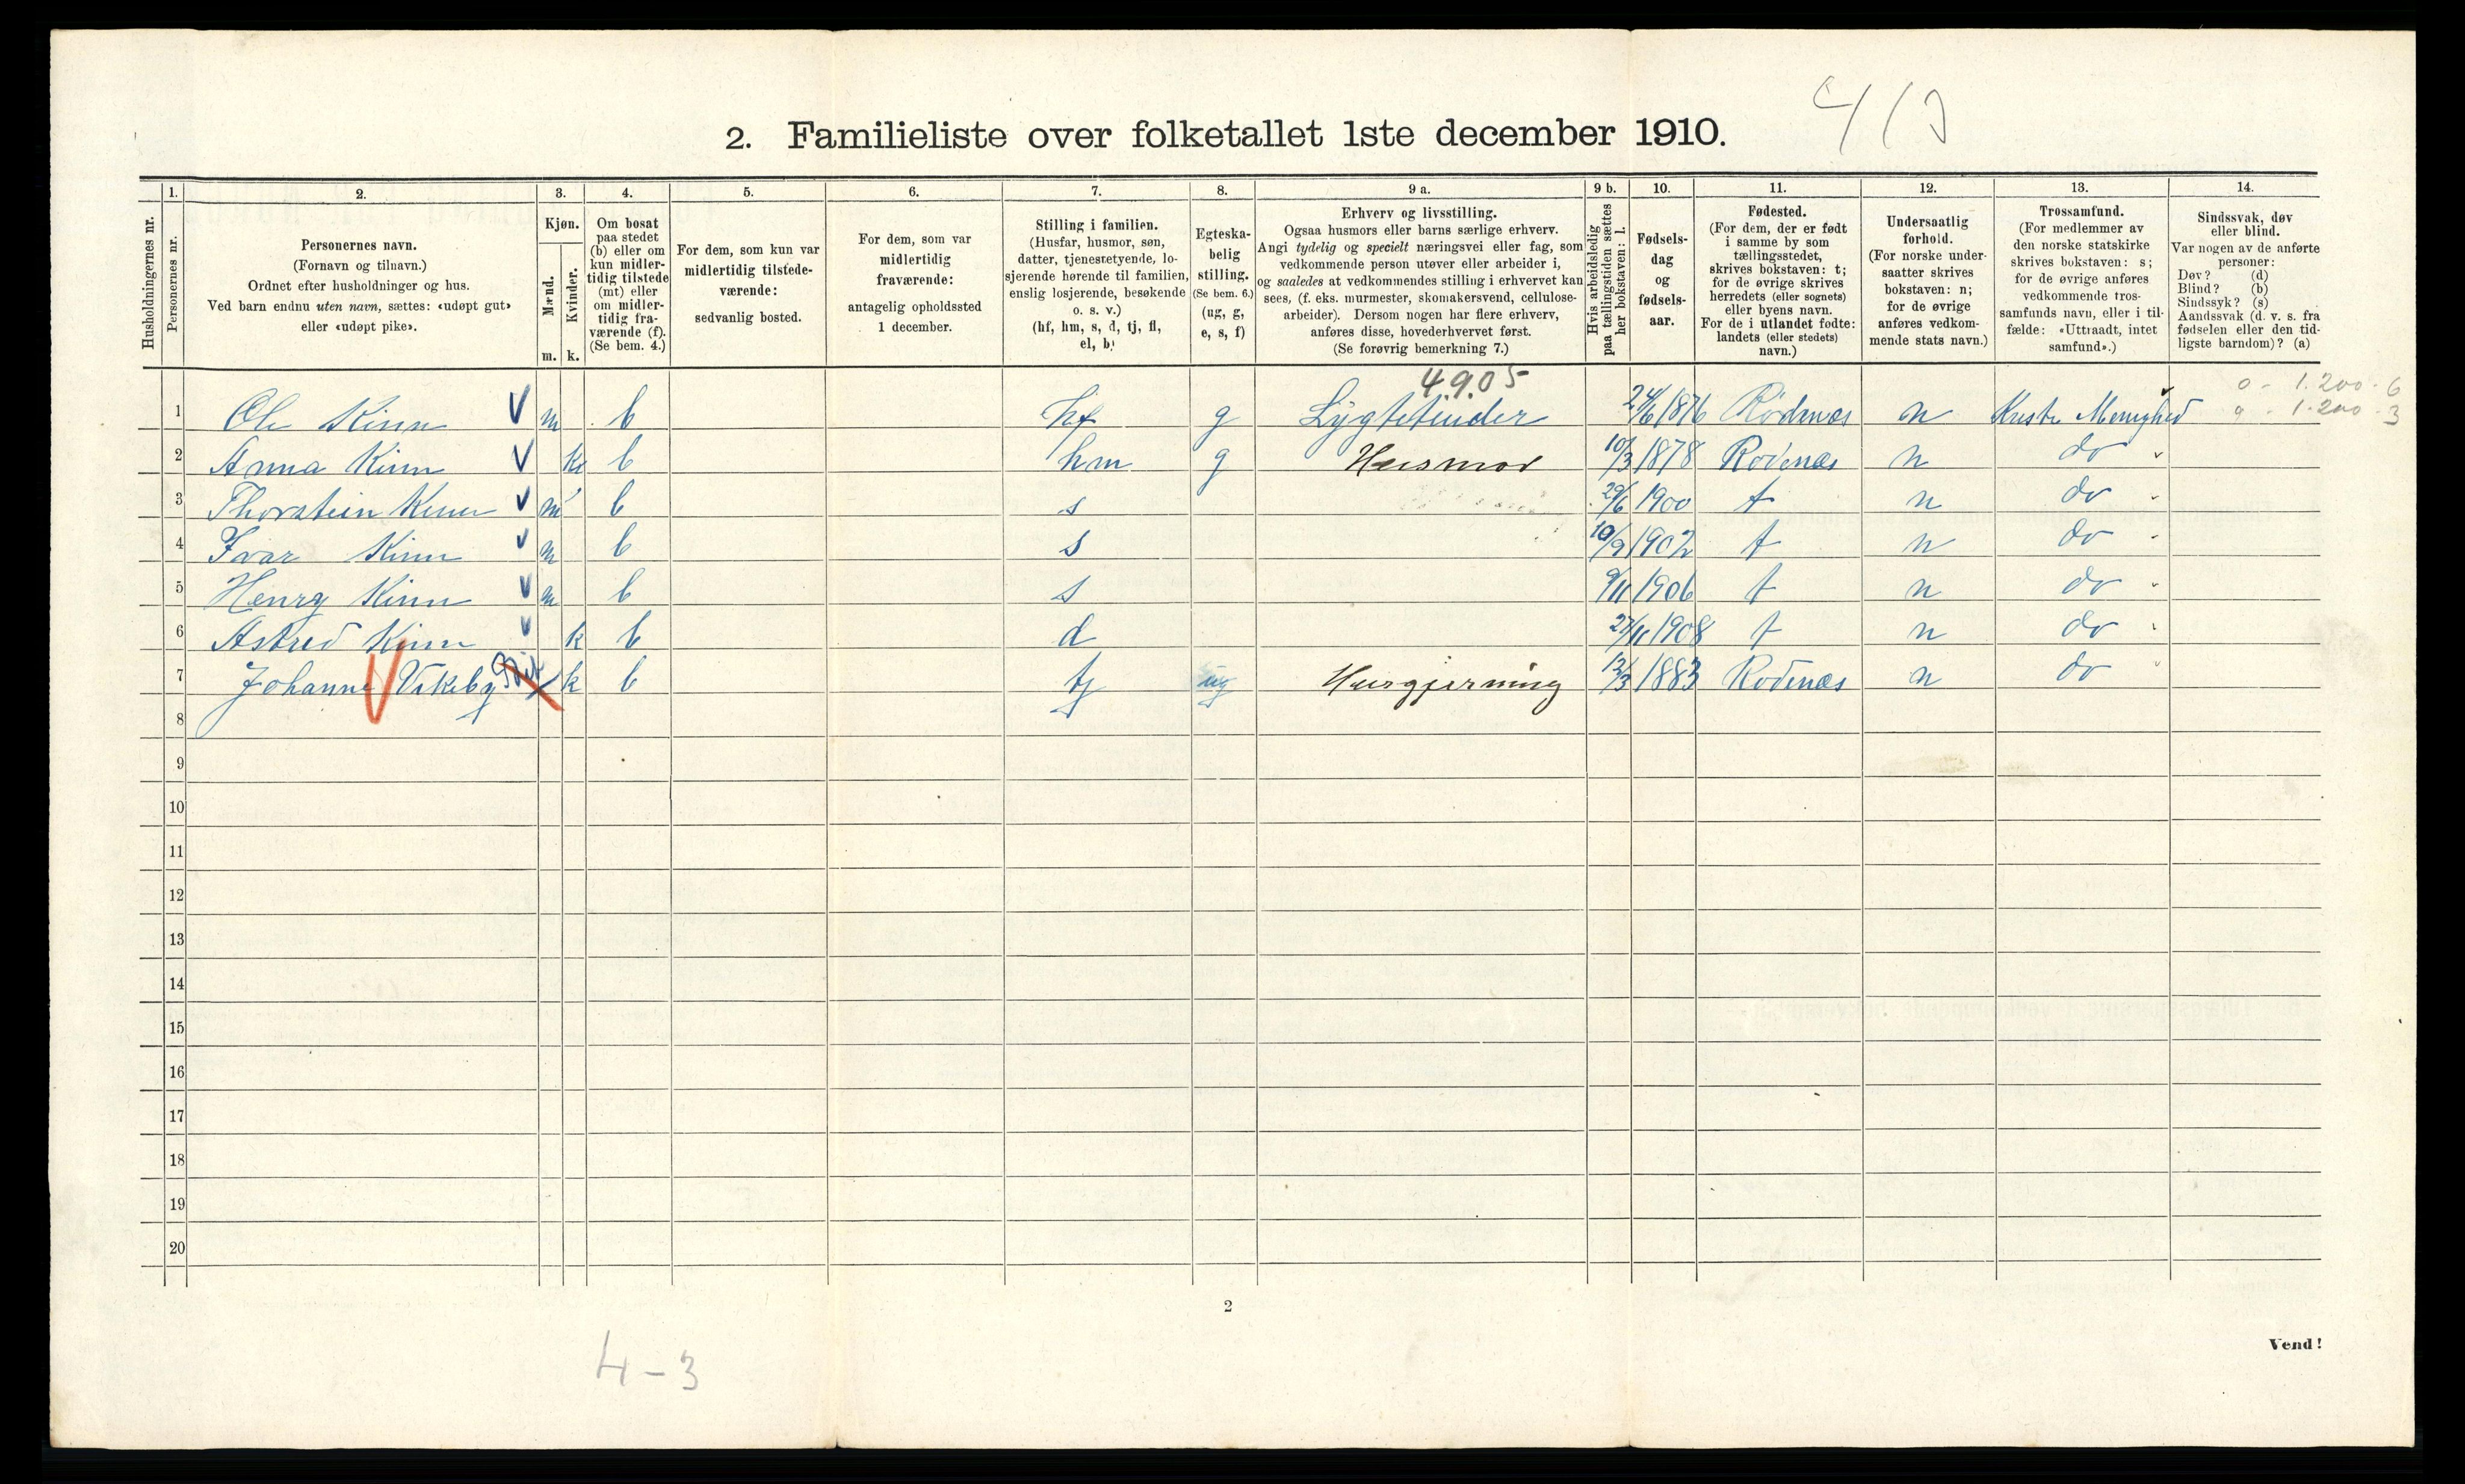 4/3
2. Familieliste over folketallet 1ste december 1910.
Husholdningernes nr.
1.
Personernes nr.
2.
Personernes navn.
(Fornavn og tilnavn.)
Ordnet efter husholdninger og hus.
Ved barn endnu uten navn, sættes: «udøpt gut»
eller «udøpt pike».
3.
Kjøn.
Mænd.
m.
Kvinder.
k.
4.
Om bosat
paa stedet
(b) eller om
kun midler-
tidig tilstede
(mt) eller
om midler-
tidig fra-
værende (f).
(Se bem. 4.)
5.
For dem, som kun var
midlertidig tilstede-
værende:
sedvanlig bosted.
6.
For dem, som var
midlertidig
fraværende:
antagelig opholdssted
1 december.
7.
Stilling i familien.
(Husfar, husmor, søn,
datter, tjenestetyende, lo-
sjerende hørende til familien,
enslig losjerende, besøkende
o. s. v.)
(hf, hm, s, d, tj, fl,
el, b)
8.
Egteska-
belig
stilling.
(Se bem. 6.)
(ug, g,
e, s, f)
9 a.
Erhverv og livsstilling.
Ogsaa husmors eller barns særlige erhverv.
Angi tydelig og specielt næringsvei eller fag, som
vedkommende person utøver eller arbeider i,
og saaledes at vedkommendes stilling i erhvervet kan
sees, (f. eks. murmester, skomakersvend, cellulose-
arbeider). Dersom nogen har flere erhverv,
anføres disse, hovederhvervet først.
(Se forøvrig bemerkning 7.)
9 b.
Hvis arbeidsledig
paa tællingstiden sættes
her bokstaven: l.
10.
Fødsels-
dag
og
fødsels-
aar.
11.
Fødested.
(For dem, der er født
i samme by som
tællingsstedet,
skrives bokstaven: t;
for de øvrige skrives
herredets (eller sognets)
eller byens navn.
For de i utlandet fødte:
landets (eller stedets)
navn.)
12.
Undersaatlig
forhold.
(For norske under-
saatter skrives
bokstaven: n;
for de øvrige
anføres vedkom-
mende stats navn.)
13.
Trossamfund.
(For medlemmer av
den norske statskirke
skrives bokstaven: s;
for de øvrige anføres
vedkommende tros-
samfunds navn, eller i til-
fælde: «Uttraadt, intet
samfund».)
14.
Sindssvak, døv
eller blind.
Var nogen av de anførte
personer:
Døv? (d)
Blind? (b)
Sindssyk? (s)
Aandssvak (d. v. s. fra
fødselen eller den tid-
ligste barndom)? (a)
4905
o - 1.200 - 6
1 Ole Kinn V m b hf g Lygtetender 24/6 1876 Rødenæs n Menighed 1.200 - 3
2 Anna Kinn V k b hm g Husmor 10/3 1878 Rødenæs n do
3 Thorstein Kinn V m b s 29/6 1900 t n do
4 Ivar Kinn V m b s 10/9 1902 t n do
5 Henry Kinn V m b s 9/11 1906 t n do
6 Astrid Kinn V k b d 27/11 1908 t n do
7 Johanne Vikeby k b tj ug Husgjerning 1883 Rødenæs n do
8
9
10
11
12
13
14
15
16
17
18
19
20
2
Vend!
4-3